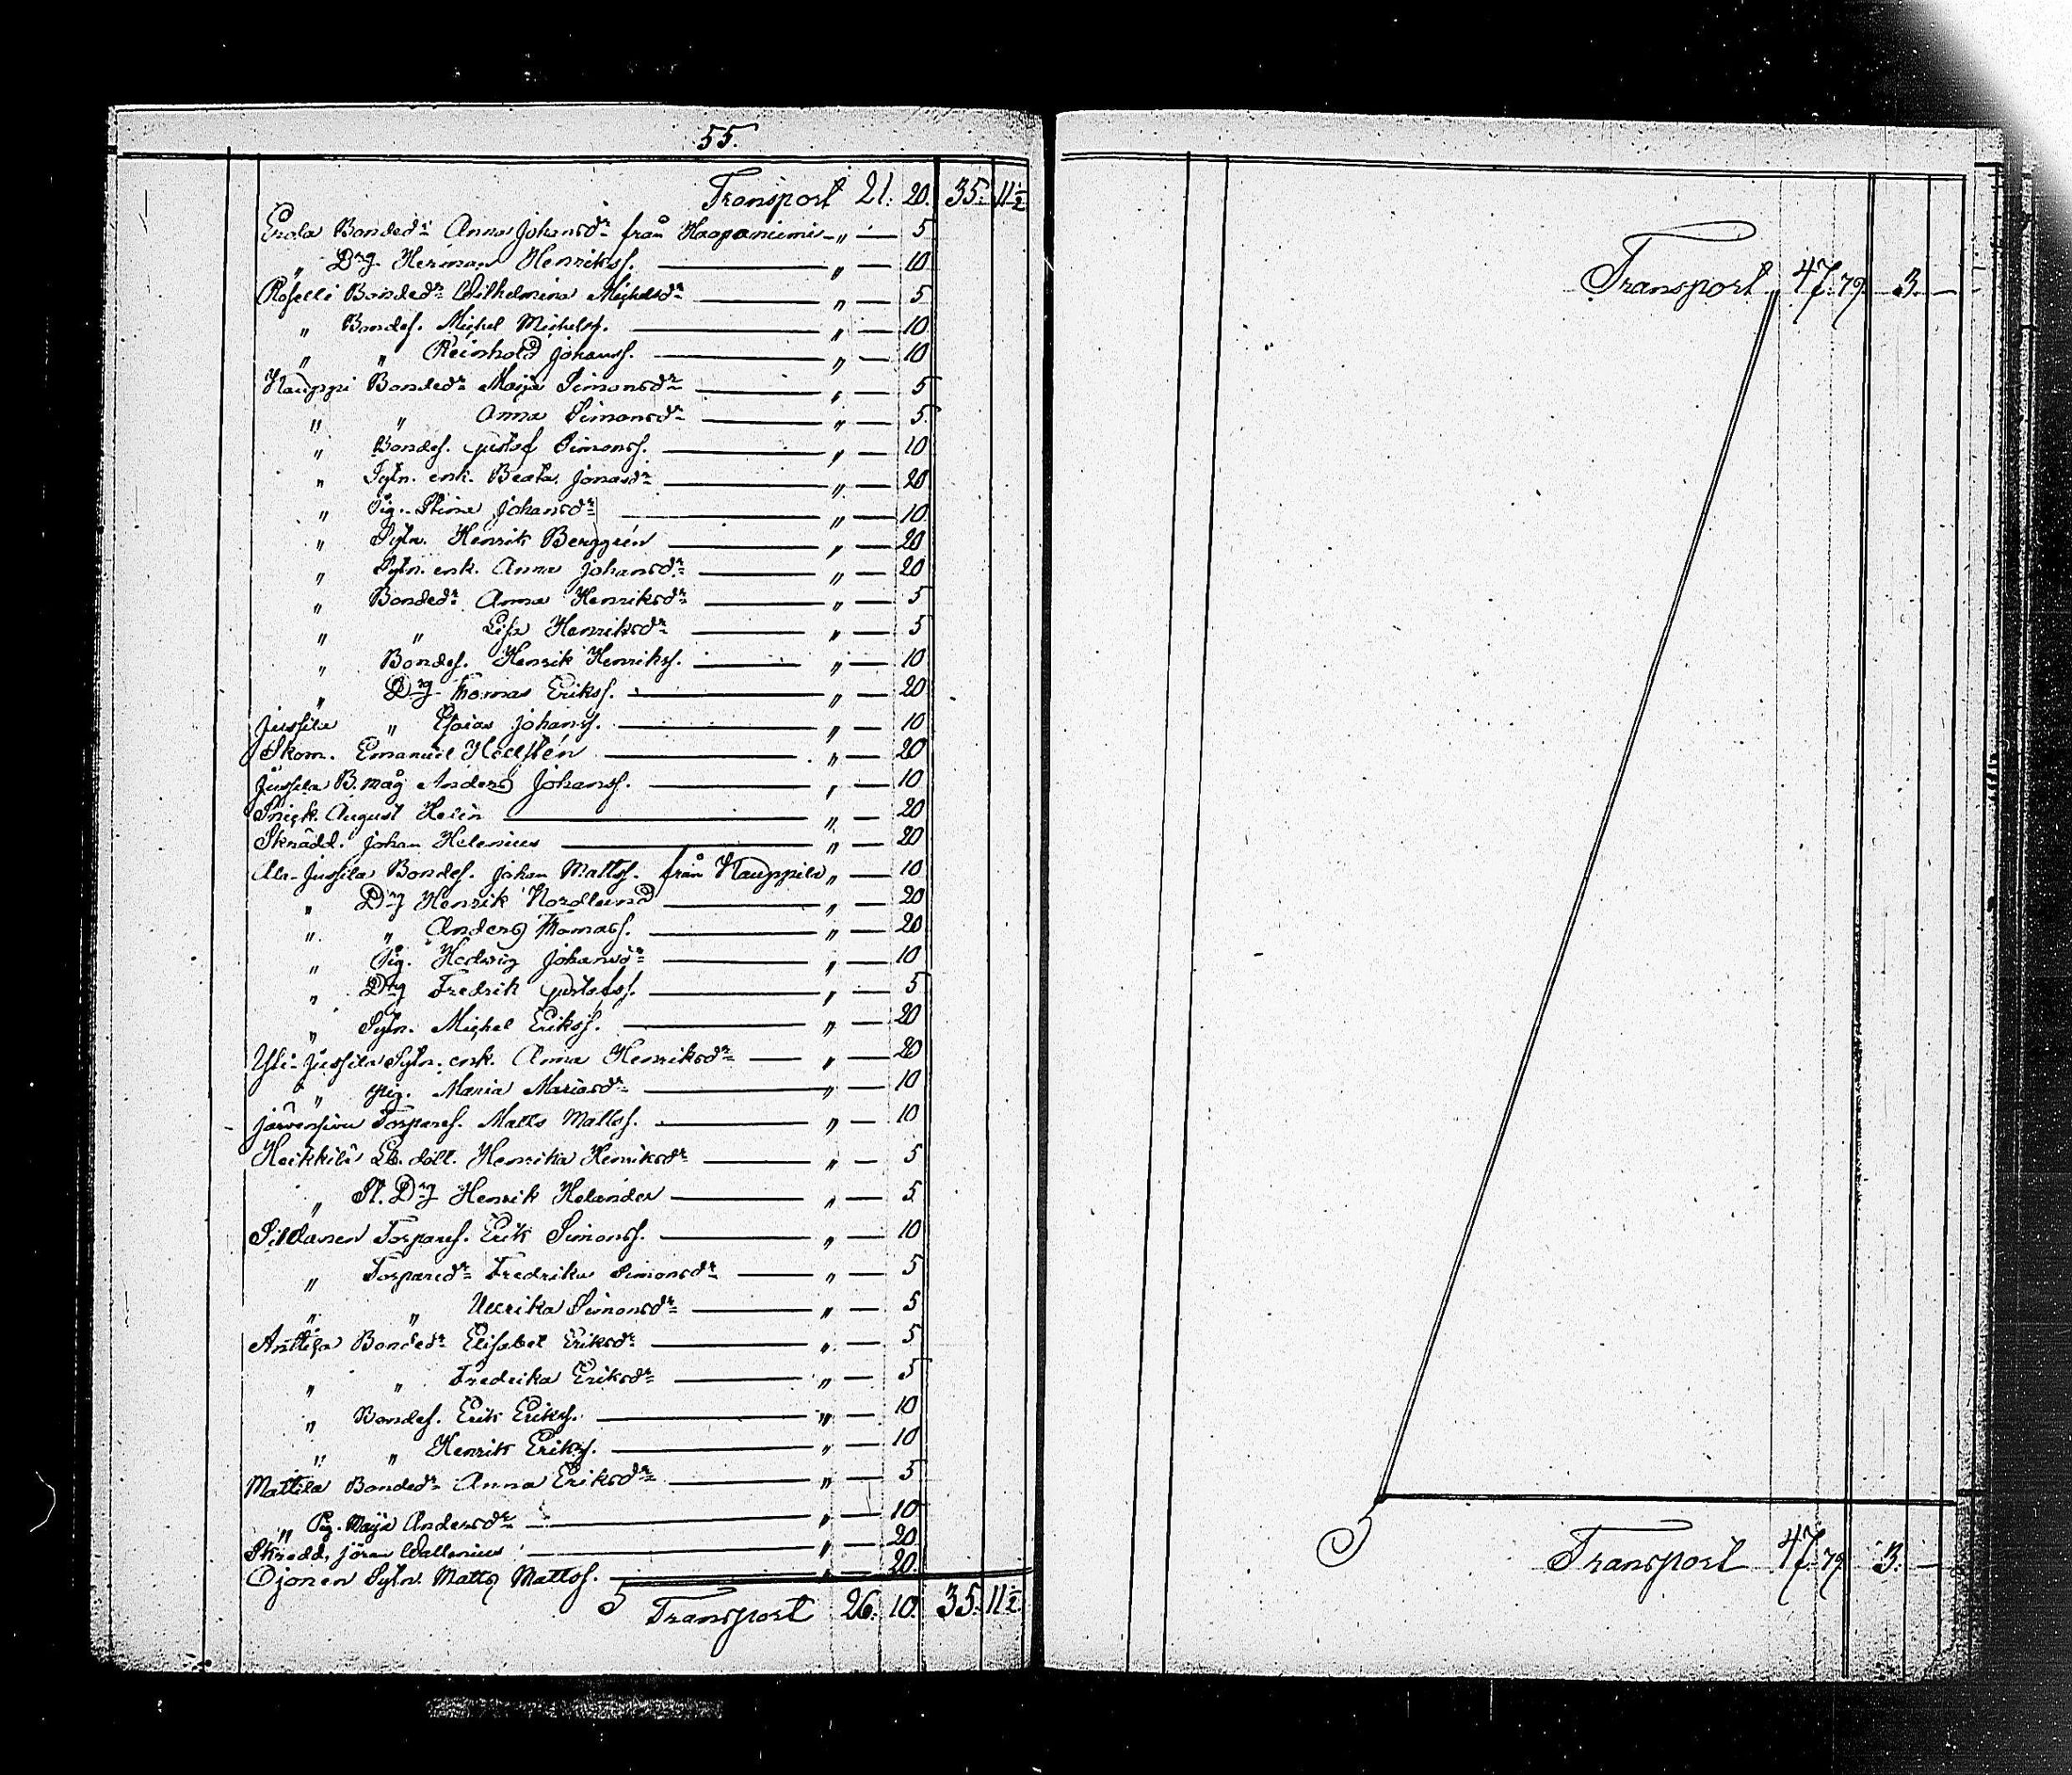 55.
Transport 21. 20. 35. 11 1/2
Erola Bondedr Anna Johansdr från Haapaniemi — " — 5
" Drg. Herman Henrikss. — " — 10
Roselli Bondedr Wilhelmina Michelsdr — " — 5
" Bondes. Michel Michelss. — " — 10
" " Reinhold Johanss. — " — 10
Kauppi Bondedr Maija Simonsdr — " — 5
" " Anna Simonsdr — " — 5
" Bondes. Gustaf Simonss. — " — 10
" Sytn. enk. Beata Jonasdr — " — 20
" Pig. Stina Johansdr — " — 10
" Sytn. Henrik Berggrén — " — 20
" Sytn. enk. Anna Johansdr — " — 20
" Bondedr Anna Henriksdr — " — 5
" " Lisa Henriksdr — " — 5
" Bondes. Henrik Henrikss. — " — 10
" Drg Thomas Erikss. — " — 20
Jussila " Esaias Johanss. — " — 10
Skom. Emanuel Hellstén — " — 20
Jussila B. måg Anders Johanss. — " — 10
Snick. August Helin — " — 20
Skrädd. Johan Helenius — " — 20
Ala-Jussila Bondes. Johan Mattss. från Kauppila " — 10
" Drg Henrik Nordlund — " — 20
" " Anders Thomass. — " — 20
" Pig. Hedvig Johansdr — " — 10
" Drg Fredrik Gustafss. — " — 5
" Sytn. Michel Erikss. — " — 20
Yli-Jussila Sytn. enk. Anna Henriksdr — " — 20
" Pig. Maria Mariasdr — " — 10
Järvensivu Torpares. Matts Mattss. — " — 10
Heikkilä Lb. dott. Henrika Henriksdr — " — 5
" St. Drg Henrik Helander — " — 5
Sillanen Torpares. Erik Simonss. — " — 10
" Torparedr Fredrika Simonsdr — " — 5
" " Ulrika Simonsdr — " — 5
Anttila Bondedr Elisabet Eriksdr — " — 5
" " Fredrika Eriksdr — " — 5
" Bondes. Erik Erikss. — " — 10
" " Henrik Erikss. — " — 10
Mattila Bondedr Anna Eriksdr — " — 5
" Pig. Maija Andersdr — " — 10
Skrädd. Jöran Wallenius — " — 20
Ojonen Sytn. Matts Mattss. — " — 20
Transport 26. 10. 35. 11 1/2
Transport 47. 79. 3. —
Transport 47. 79. 3. —